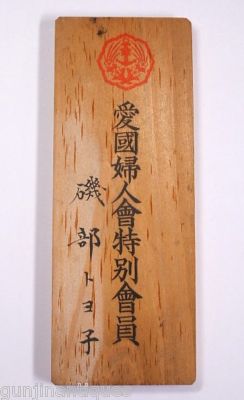 愛國婦人會特別會員
磯部トヨ子
gunjinantiques